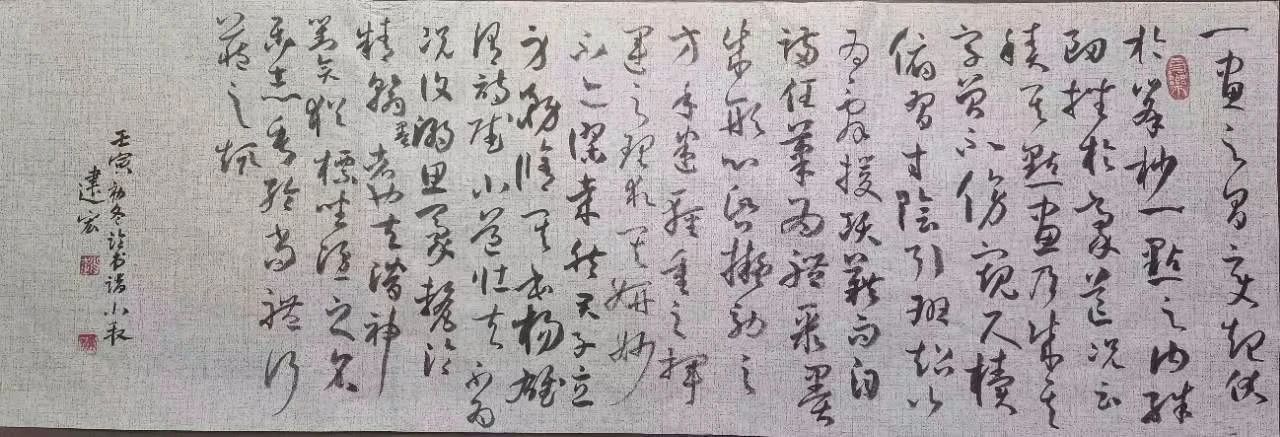 一畫之間變起伏
於峯杪一點之內殊
衄挫於豪芒況云
積其點畫乃成其
字曾不傍窺尺櫝
俯習寸陰引班超以
為辭援項籍而自
滿任筆為體聚墨
成形心昏擬効之
方手迷輕重之揮
運之理求其妍妙
不亦謬哉然君子立
身務修其本楊雄
謂詩賦小道壯夫不為
況復溺思豪氂淪
精翰墨者也夫潛神
對奕猶標坐隱之名
樂志垂綸尚體行
藏之趣
壬寅初冬臨书谱小段
建宏